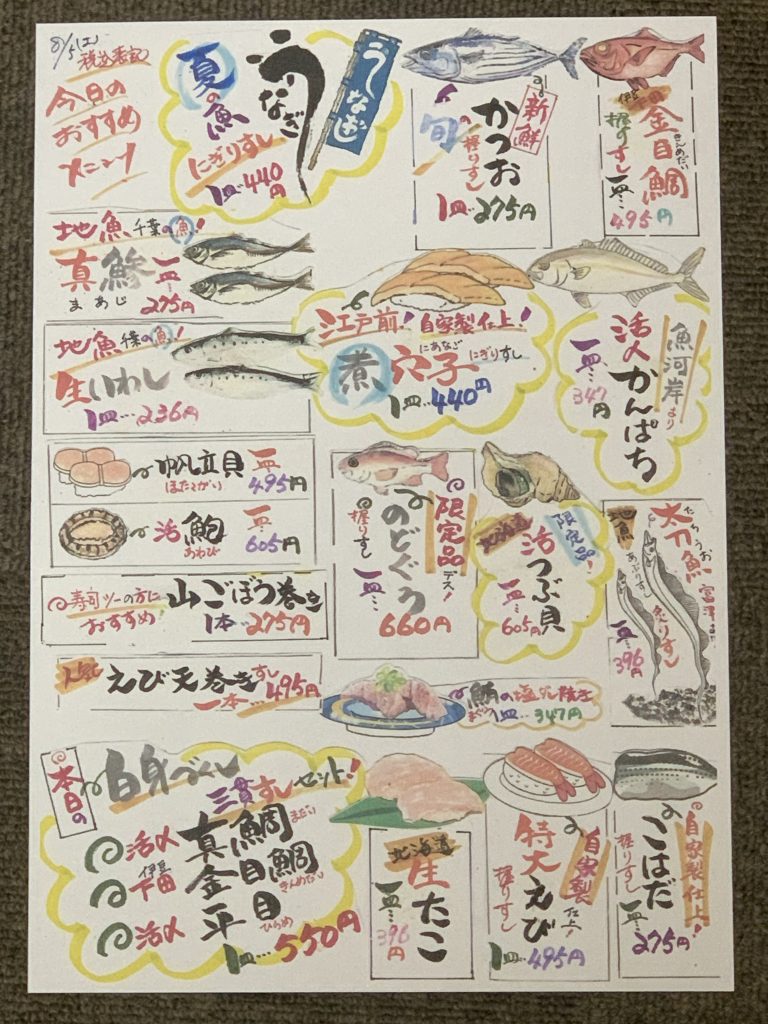 8/5(土)
税込表記
今日の
おすすめ
メニュー
夏の魚
うなぎ
うなぎ
にぎりすし
1皿440円
新鮮
かつお
旬の握りすし
1皿…275円
伊豆
金目鯛
きんめだい
握りすし
一皿…
495円
地魚千葉の魚!
真鯵
まあじ
一皿…
275円
地魚千葉の魚!
生いわし
1皿…236円
江戸前!自家製仕上!
煮穴子
にあなご
にぎりすし
1皿…440円
魚河岸より
活〆かんぱち
一皿…
347円
帆立貝
ほたてがい
一皿
495円
活鮑
あわび
一皿
605円
寿司ツーの方に
おすすめ
山ごぼう巻き
1本…275円
人気
えび天巻きすし
一本…495円
限定品デス!
のどぐろ
握りすし
一皿…
660円
限定品!
北海道
活つぶ貝
一皿…
605円
地魚
太刀魚
たちうお
あぶりすし
炙りすし
一皿…
396円
鮪の塩だれ焼き
まぐろ
1皿…347円
本日の
白身づくし
三貫すしセット!
活〆
真鯛
まだい
伊豆
下田
金目鯛
きんめだい
活〆
平目
ひらめ
1皿…550円
北海道
生たこ
一皿…
396円
自家製仕上!
特大えび
握りすし
1皿…495円
自家製仕上!
こはだ
握りすし
一皿…
275円